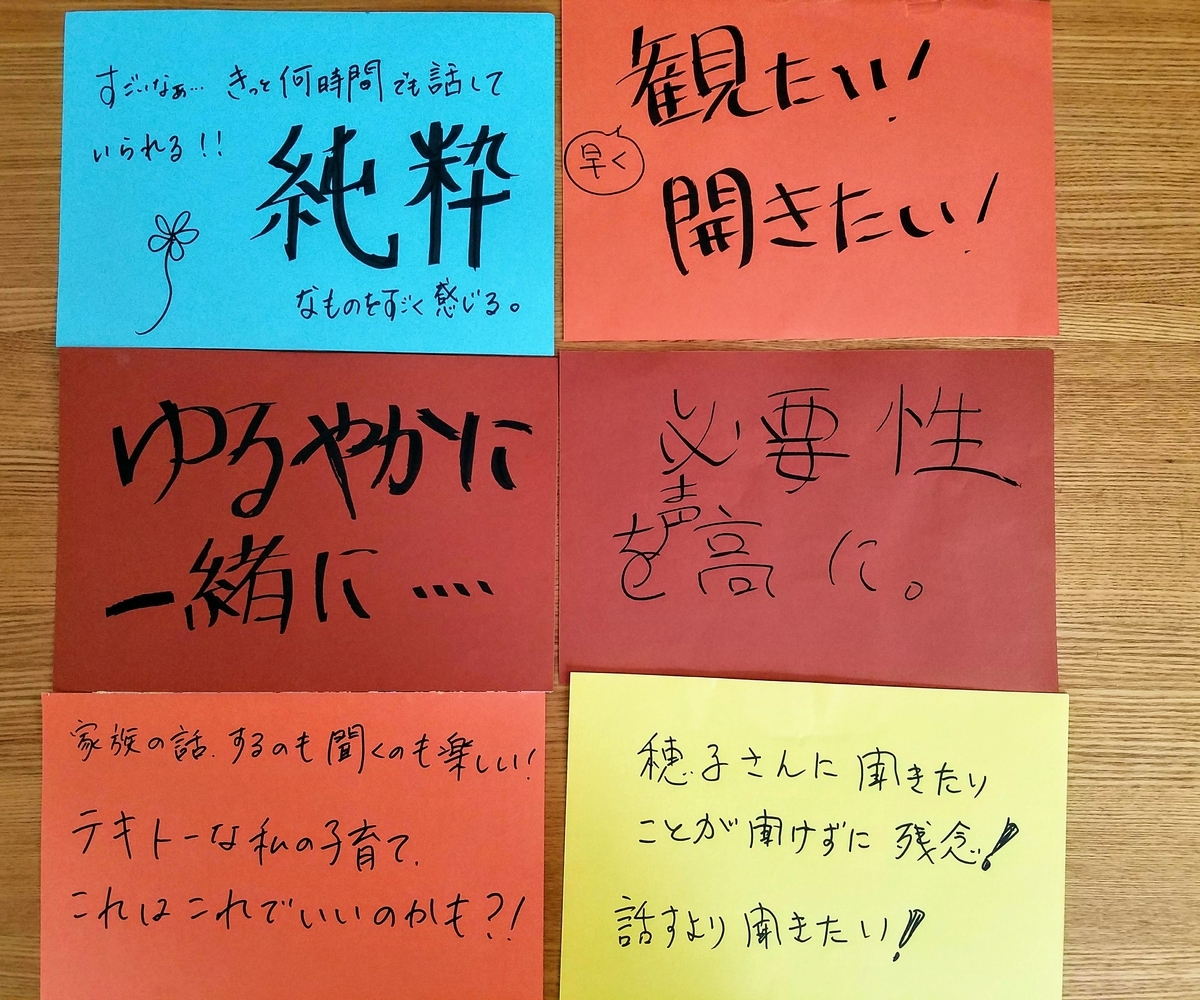 すごいなぁ… きっと何時間でも話して
いられる!!
純粋
なものをすごく感じる。
観たい!
早く
開きたい!
ゆるやかに
一緒に・・・・
必要性
を声高に。
家族の話、するのも聞くのも楽しい!
テキトーな私の子育て、
これはこれでいいのかも?!
穂子さんに聞きたい
ことが聞けずに残念!
話すより聞きたい!